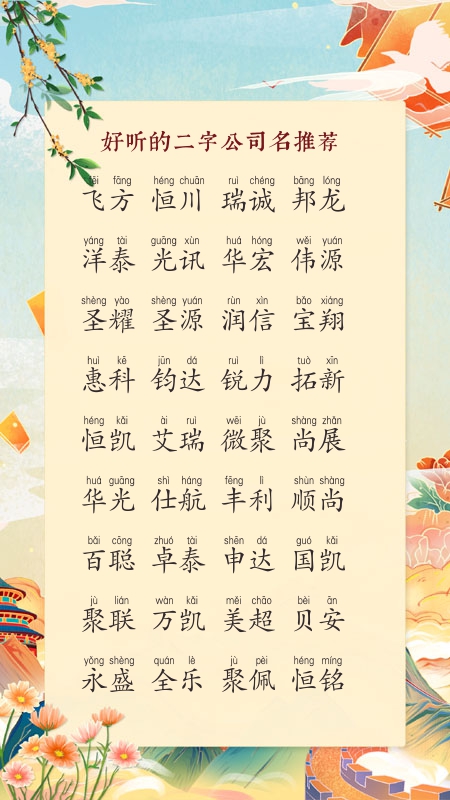 好听的二字公司名推荐
fēi fāng héng chuān ruì chéng bāng lóng
飞方 恒川 瑞诚 邦龙
yáng tài guāng xùn huá hóng wěi yuán
洋泰 光讯 华宏 伟源
shèng yào shèng yuán rùn xìn bǎo xiáng
圣耀 圣源 润信 宝翔
huì kē jūn dá ruì lì tuò xīn
惠科 钧达 锐力 拓新
héng kǎi ài ruì wēi jù shàng zhǎn
恒凯 艾瑞 微聚 尚展
huá guāng shì háng fēng lì shùn shàng
华光 仕航 丰利 顺尚
bǎi cōng zhuó tài shēn dá guó kǎi
百聪 卓泰 申达 国凯
jù lián wàn kǎi měi chāo bèi ān
聚联 万凯 美超 贝安
yǒng shèng quán lè jù pèi héng míng
永盛 全乐 聚佩 恒铭